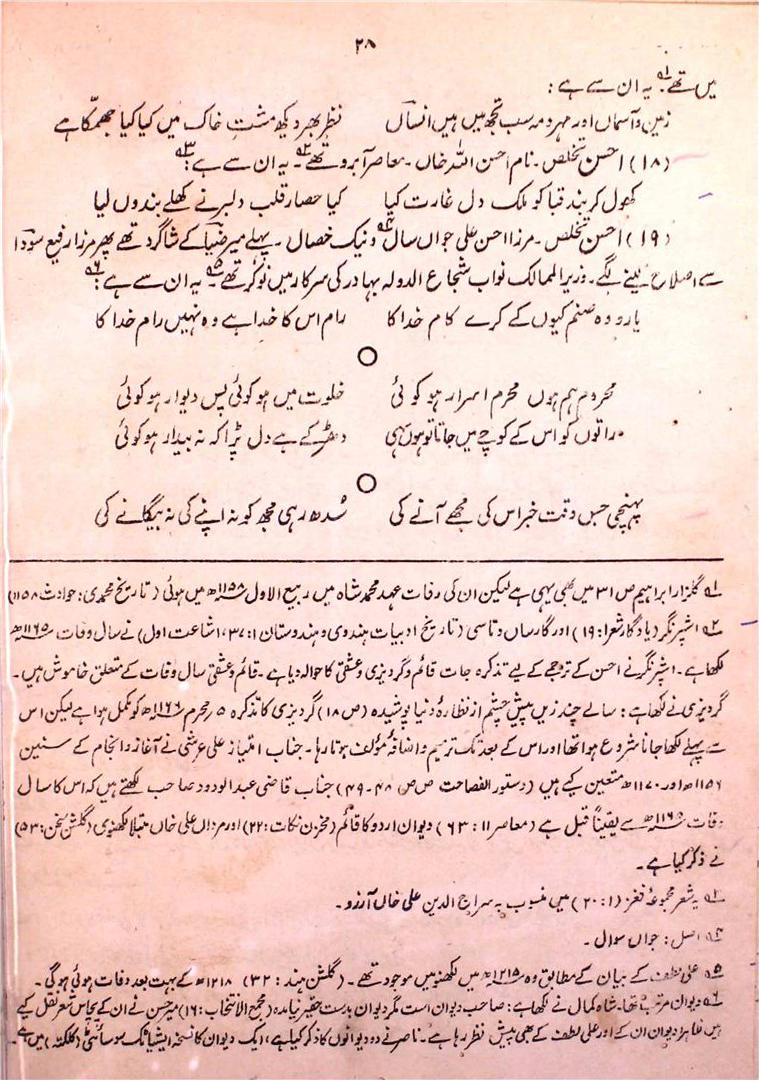 ۲۸
میں تھے۱؎۔ یہ ان سے ہے :
زمین و آسماں اور مہر و مہ سب تجھ میں ہیں انساں نظر بھر دیکھ مشتِ خاک میں کیا کیا جھمکّا ہے
(۱۸) احسن تخلص۔ نام احسن اللہ خاں۔ معاصر آبرو تھے۲؎۔ یہ ان سے ہے۳؎ :
کھول کر بندِ قبا کو ملک دل غارت کیا کیا حصار قلب دلبر نے کھلے بندوں لیا
(۱۹) احسن تخلص۔ مرزا احسن علی جواں سال۴؎ و نیک خصال۔ پہلے میر ضیاؔ کے شاگرد تھے پھر مرزا رفیع سوداؔ
سے اصلاح لینے لگے۔ وزیر الممالک نواب شجاع الدولہ بہادر کی سرکار میں نوکر تھے۵؎۔ یہ ان سے ہے۶؎ :
یارو وہ صنم کیوں کے کرے کام خدا کا رام اس کا خدا ہے وہ نہیں رام خدا کا
محروم ہم ہوں محرم اسرار ہو کوئی خلوت میں ہو کوئی پس دیوار ہو کوئی
راتوں کو اس کے کوچے میں جاتا تو ہوں پہ دھڑکے ہے دل پڑا کہ نہ بیدار ہو کوئی
پہنچی جس وقت خبر اس کی مجھے آنے کی سُدھ رہی مجھ کو نہ اپنے کی نہ بیگانے کی
۱؎ گلزار ابراہیم ص ۳۱ میں بھی یہی ہے لیکن ان کی وفات عہد محمد شاہ میں ربیع الاول ۱۱۵۸ھ میں ہوئی (تاریخ محمدی: حوادث ۱۱۵۸)
۲؎ اشپرنگر (یادگار شعرا: ۱۹) اور گارساں دتاسی (تاریخ ادبیات ہندوی و ہندوستان ۱: ۳۷، اشاعت اول) نے سال وفات ۱۱۶۵ھ
لکھا ہے۔ اشپرنگر نے احسن کے ترجمے کے لیے تذکرہ جات قائم و گردیزی و عشقی کا حوالہ دیا ہے۔ قائم و عشقی سال وفات کے متعلق خاموش ہیں۔
گردیزی نے لکھا ہے: سالے چند زیں پیش چشم از نظارۂ دنیا پوشیدہ (ص ۱۸) گردیزی کا تذکرہ ۵ محرم ۱۱۶۶ھ کو مکمل ہوا ہے لیکن اس
سے پہلے لکھا جانا شروع ہوا تھا اور اس کے بعد تک ترمیم و اضافۂ مؤلف ہوتا رہا۔ جناب امتیاز علی عرشی نے آغاز و انجام کے سنین
۱۱۵۶ھ اور ۱۱۷۰ھ متعین کیے ہیں (دستور الفصاحت ص ص ۴۸-۴۹) جناب قاضی عبدالودود صاحب لکھتے ہیں کہ اس کا سال
وفات ۱۱۶۵ھ سے یقیناً قبل ہے (معاصر ۱۱: ۶۳) دیوان اردو کا قائم (مخزن نکات: ۲۲) اور مردان علی خاں مبتلا لکھنوی (گلشن سخن: ۵۳)
نے ذکر کیا ہے۔
۳؎ یہ شعر مجموعۂ نغز (۱: ۲۰) میں منسوب بہ سراج الدین علی خاں آرزو۔
۴؎ اصل: جواں سوال۔
۵؎ علی لطف کے بیان کے مطابق وہ ۱۲۱۵ھ میں لکھنؤ میں موجود تھے۔ (گلشن ہند: ۳۲) ۱۲۱۸ھ کے بہت بعد وفات ہوئی ہوگی۔
۶؎ دیوان مرتب تھا۔ شاہ کمال نے لکھا ہے: صاحب دیوان است مگر دیوان بدست حقیر نیامدہ (مجمع الانتخاب: ۱۶) میر حسن نے ان کے پچاس شعر نقل کیے
ہیں ظاہرا دیوان ان کے اور علی لطف کے بھی پیش نظر رہا ہے۔ ناصر نے دو دیوانوں کا ذکر کیا ہے، ایک دیوان کا نسخہ ایشیاٹک سوسائٹی (کلکتہ) میں ہے۔